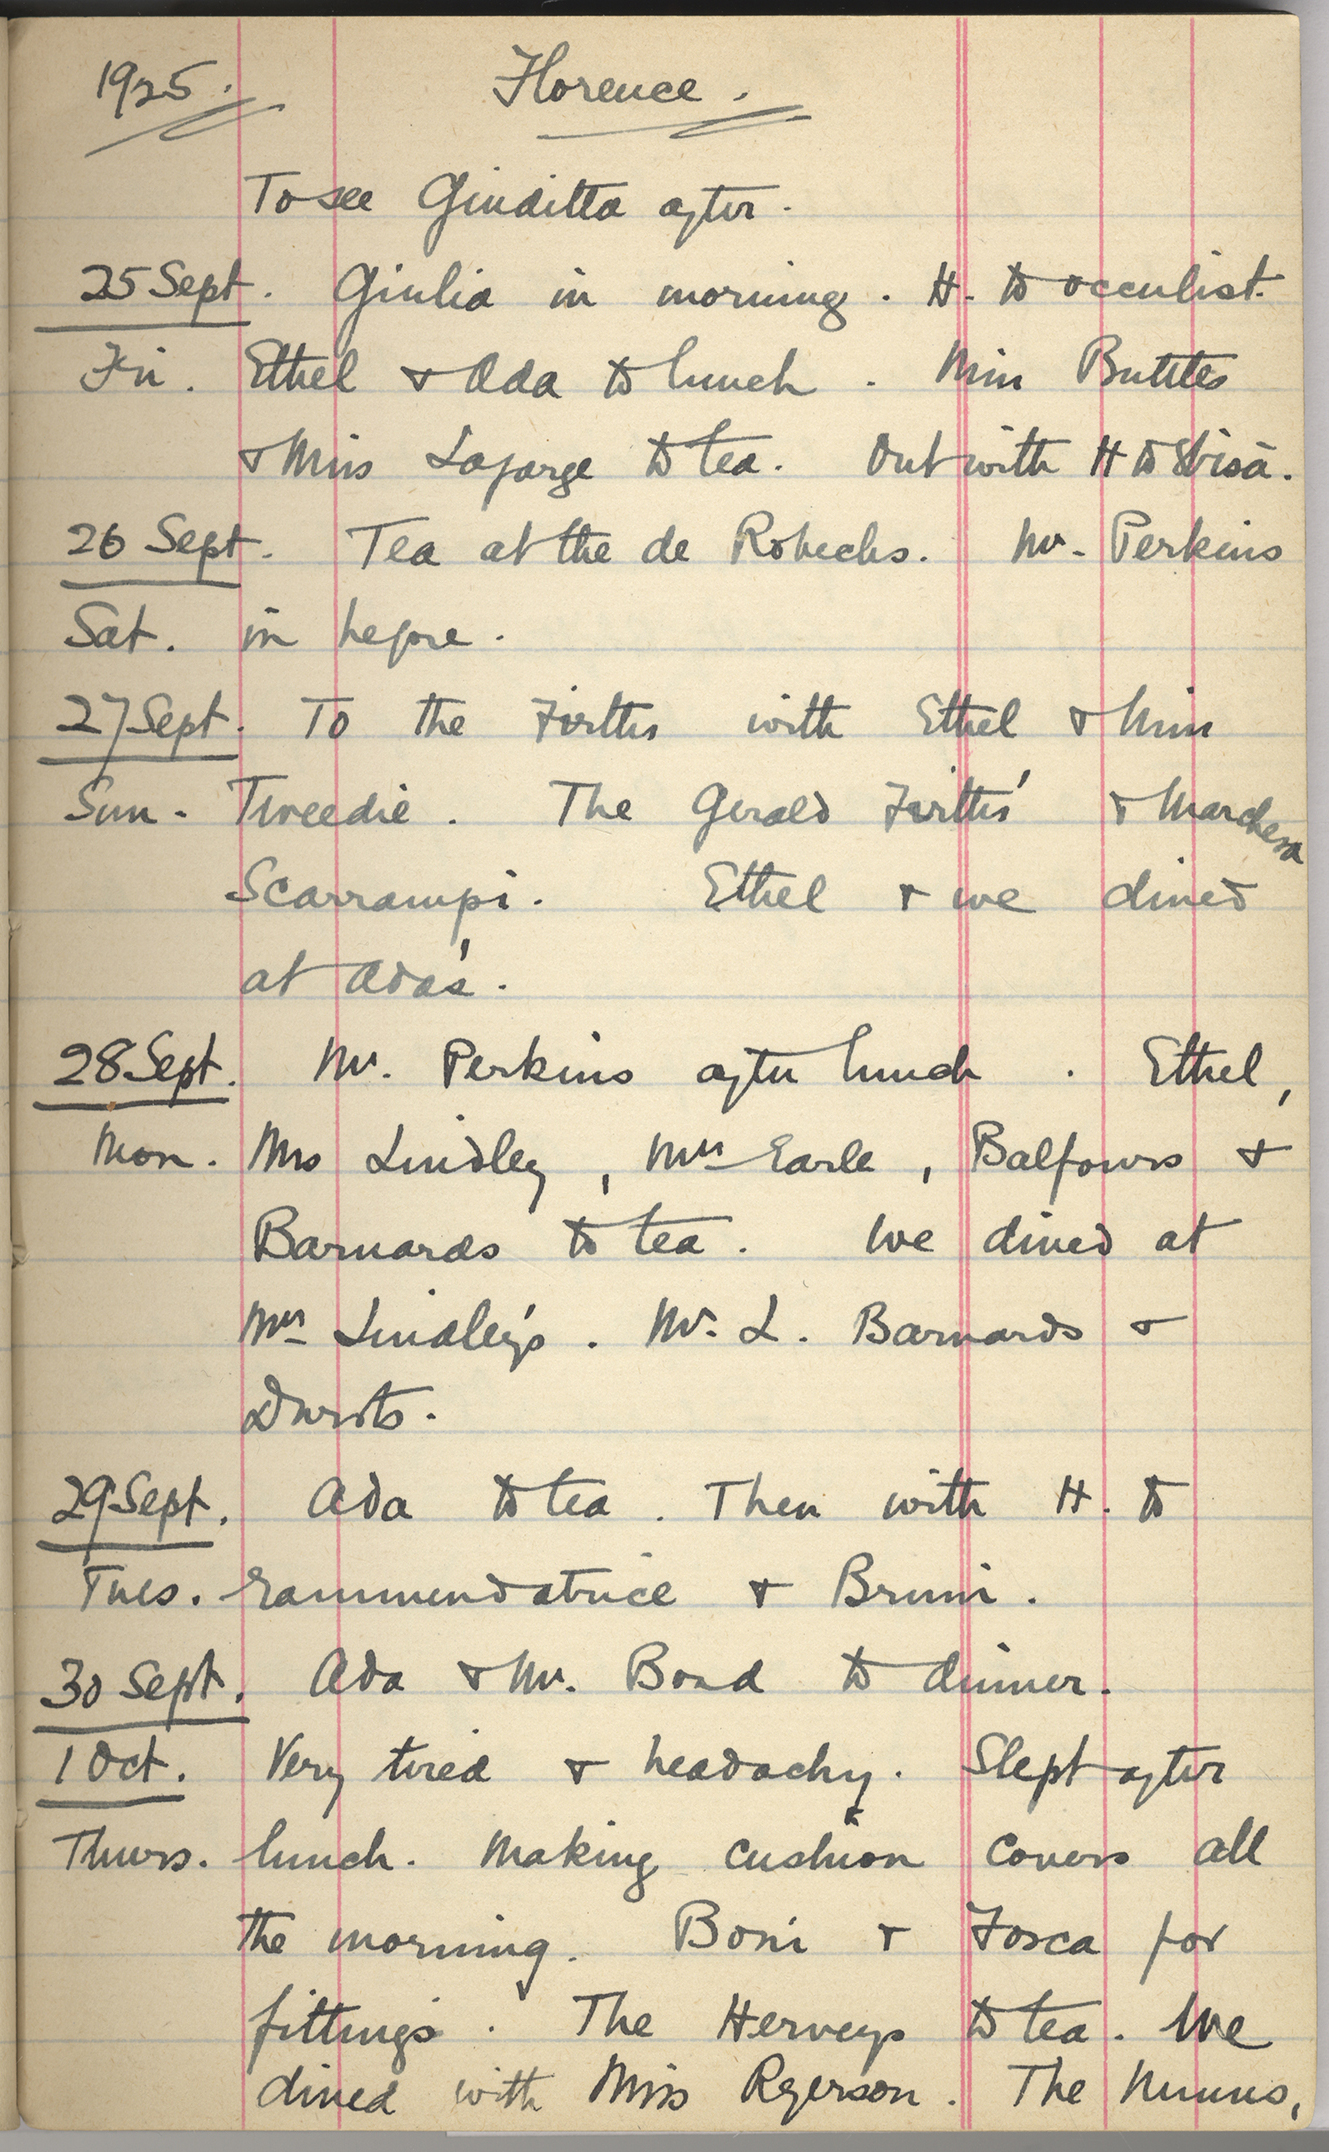 1925. Florence.
To see Giuditta after.
25 Sept. Giulia in morning. H. to occulist.
Fri. Ethel & Ada to lunch. Miss
& Miss Lafarge to tea. Out with H to
26 Sept. Tea at the de Robecks. Mr. Perkins
Sat. in before.
27 Sept. To the Firths with Ethel & Miss
Sun. Tweedie. The Gerald Firths' & Marchesa
Scarrampi. Ethel & we dined
at Ada's.
28 Sept. Mr. Perkins after lunch. Ethel,
Mon. Mrs Lindley, Mrs Earle, Balfours &
Barnards to tea. We dined at
Mrs Lindley's. Mr. L. Barnards &

29 Sept. Ada to tea. Then with H. to
Tues. rammendatrice & Bruni.
30 Sept. Ada & Mr. Bond to dinner.
1 Oct. Very tired & headachy. Slept after
Thurs. lunch. Making cushion covers all
the morning. Boni & Tosca for
fittings. The Herveys to tea. We
dined with Miss Ryerson. The Nunns,